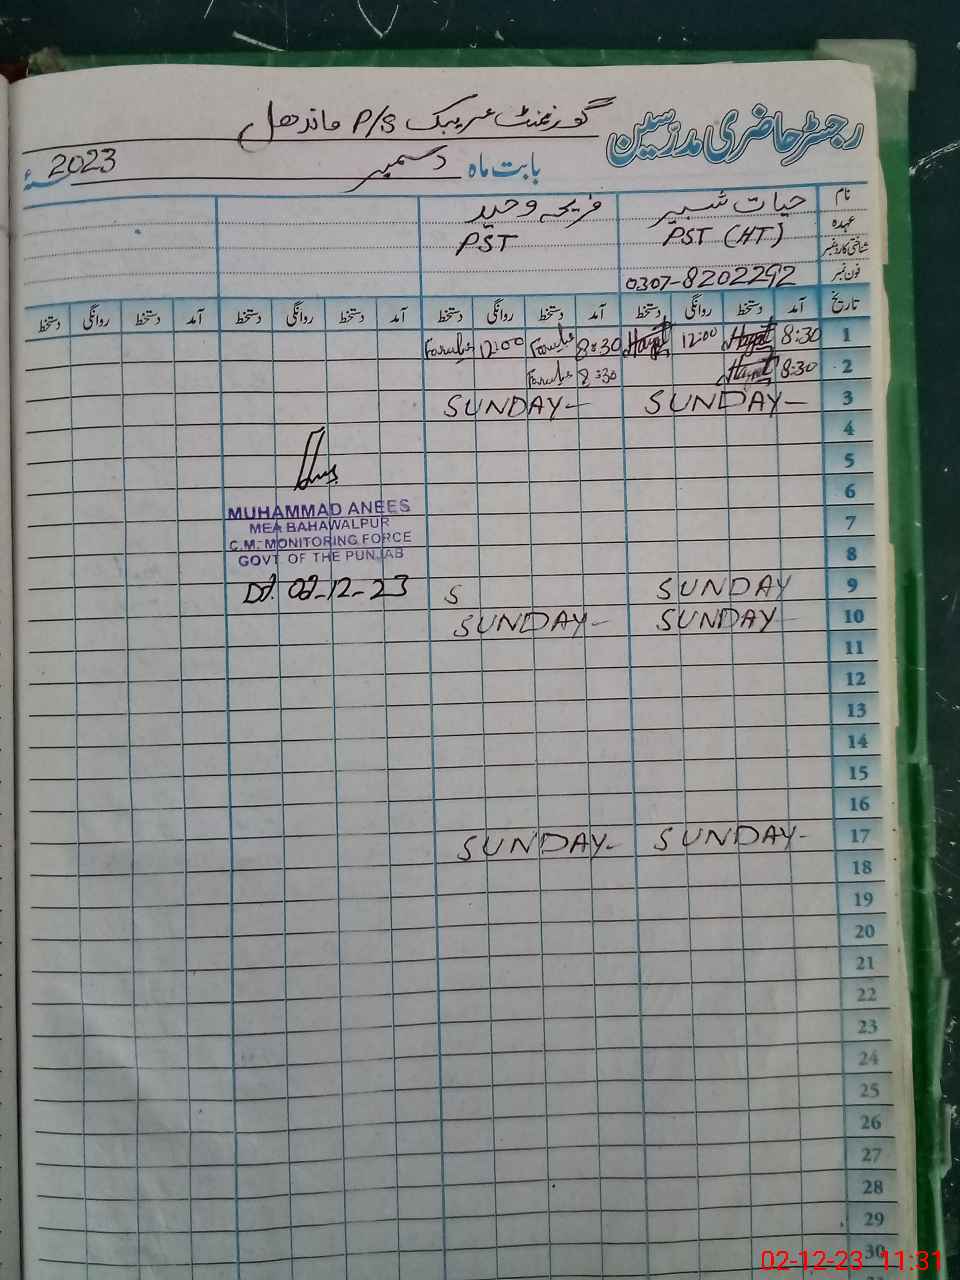 رجسٹر حاضری مدرسین گورنمنٹ عریبک P/S ماندھل
بابت ماہ دسمبر 2023ء
نام حیات شبیر فریحہ وحید
عہدہ PST (HT) PST
شناختی کارڈ نمبر
فون نمبر 0307-8202292
تاریخ آمد دستخط روانگی دستخط آمد دستخط روانگی دستخط آمد دستخط روانگی دستخط آمد دستخط روانگی دستخط
1 8:30 Hayat 12:00 Hayat 8:30 12:00
2 8:30 Hayat 8:30
3 SUNDAY- SUNDAY-
4
5
6
7
8
MUHAMMAD ANEES
MEA BAHAWALPUR
C.M. MONITORING FORCE
GOVT OF THE PUNJAB
Dt. 02-12-23
9 SUNDAY S
10 SUNDAY- SUNDAY-
11
12
13
14
15
16
17 SUNDAY- SUNDAY-
18
19
20
21
22
23
24
25
26
27
28
29
30
02-12-23 11:31